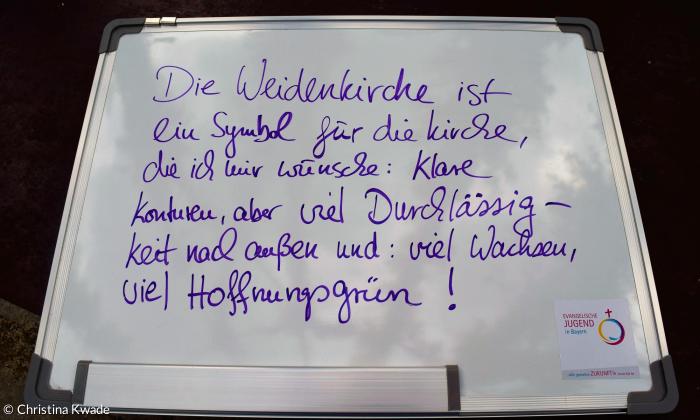 Die Weidenkirche ist
ein Symbol für die Kirche,
die ich mir wünsche: Klare
Konturen, aber viel Durchlässig-
keit nach außen und: viel Wachsen,
viel Hoffnungsgrün!
EVANGELISCHE
JUGEND
in Bayern
© Christina Kwade